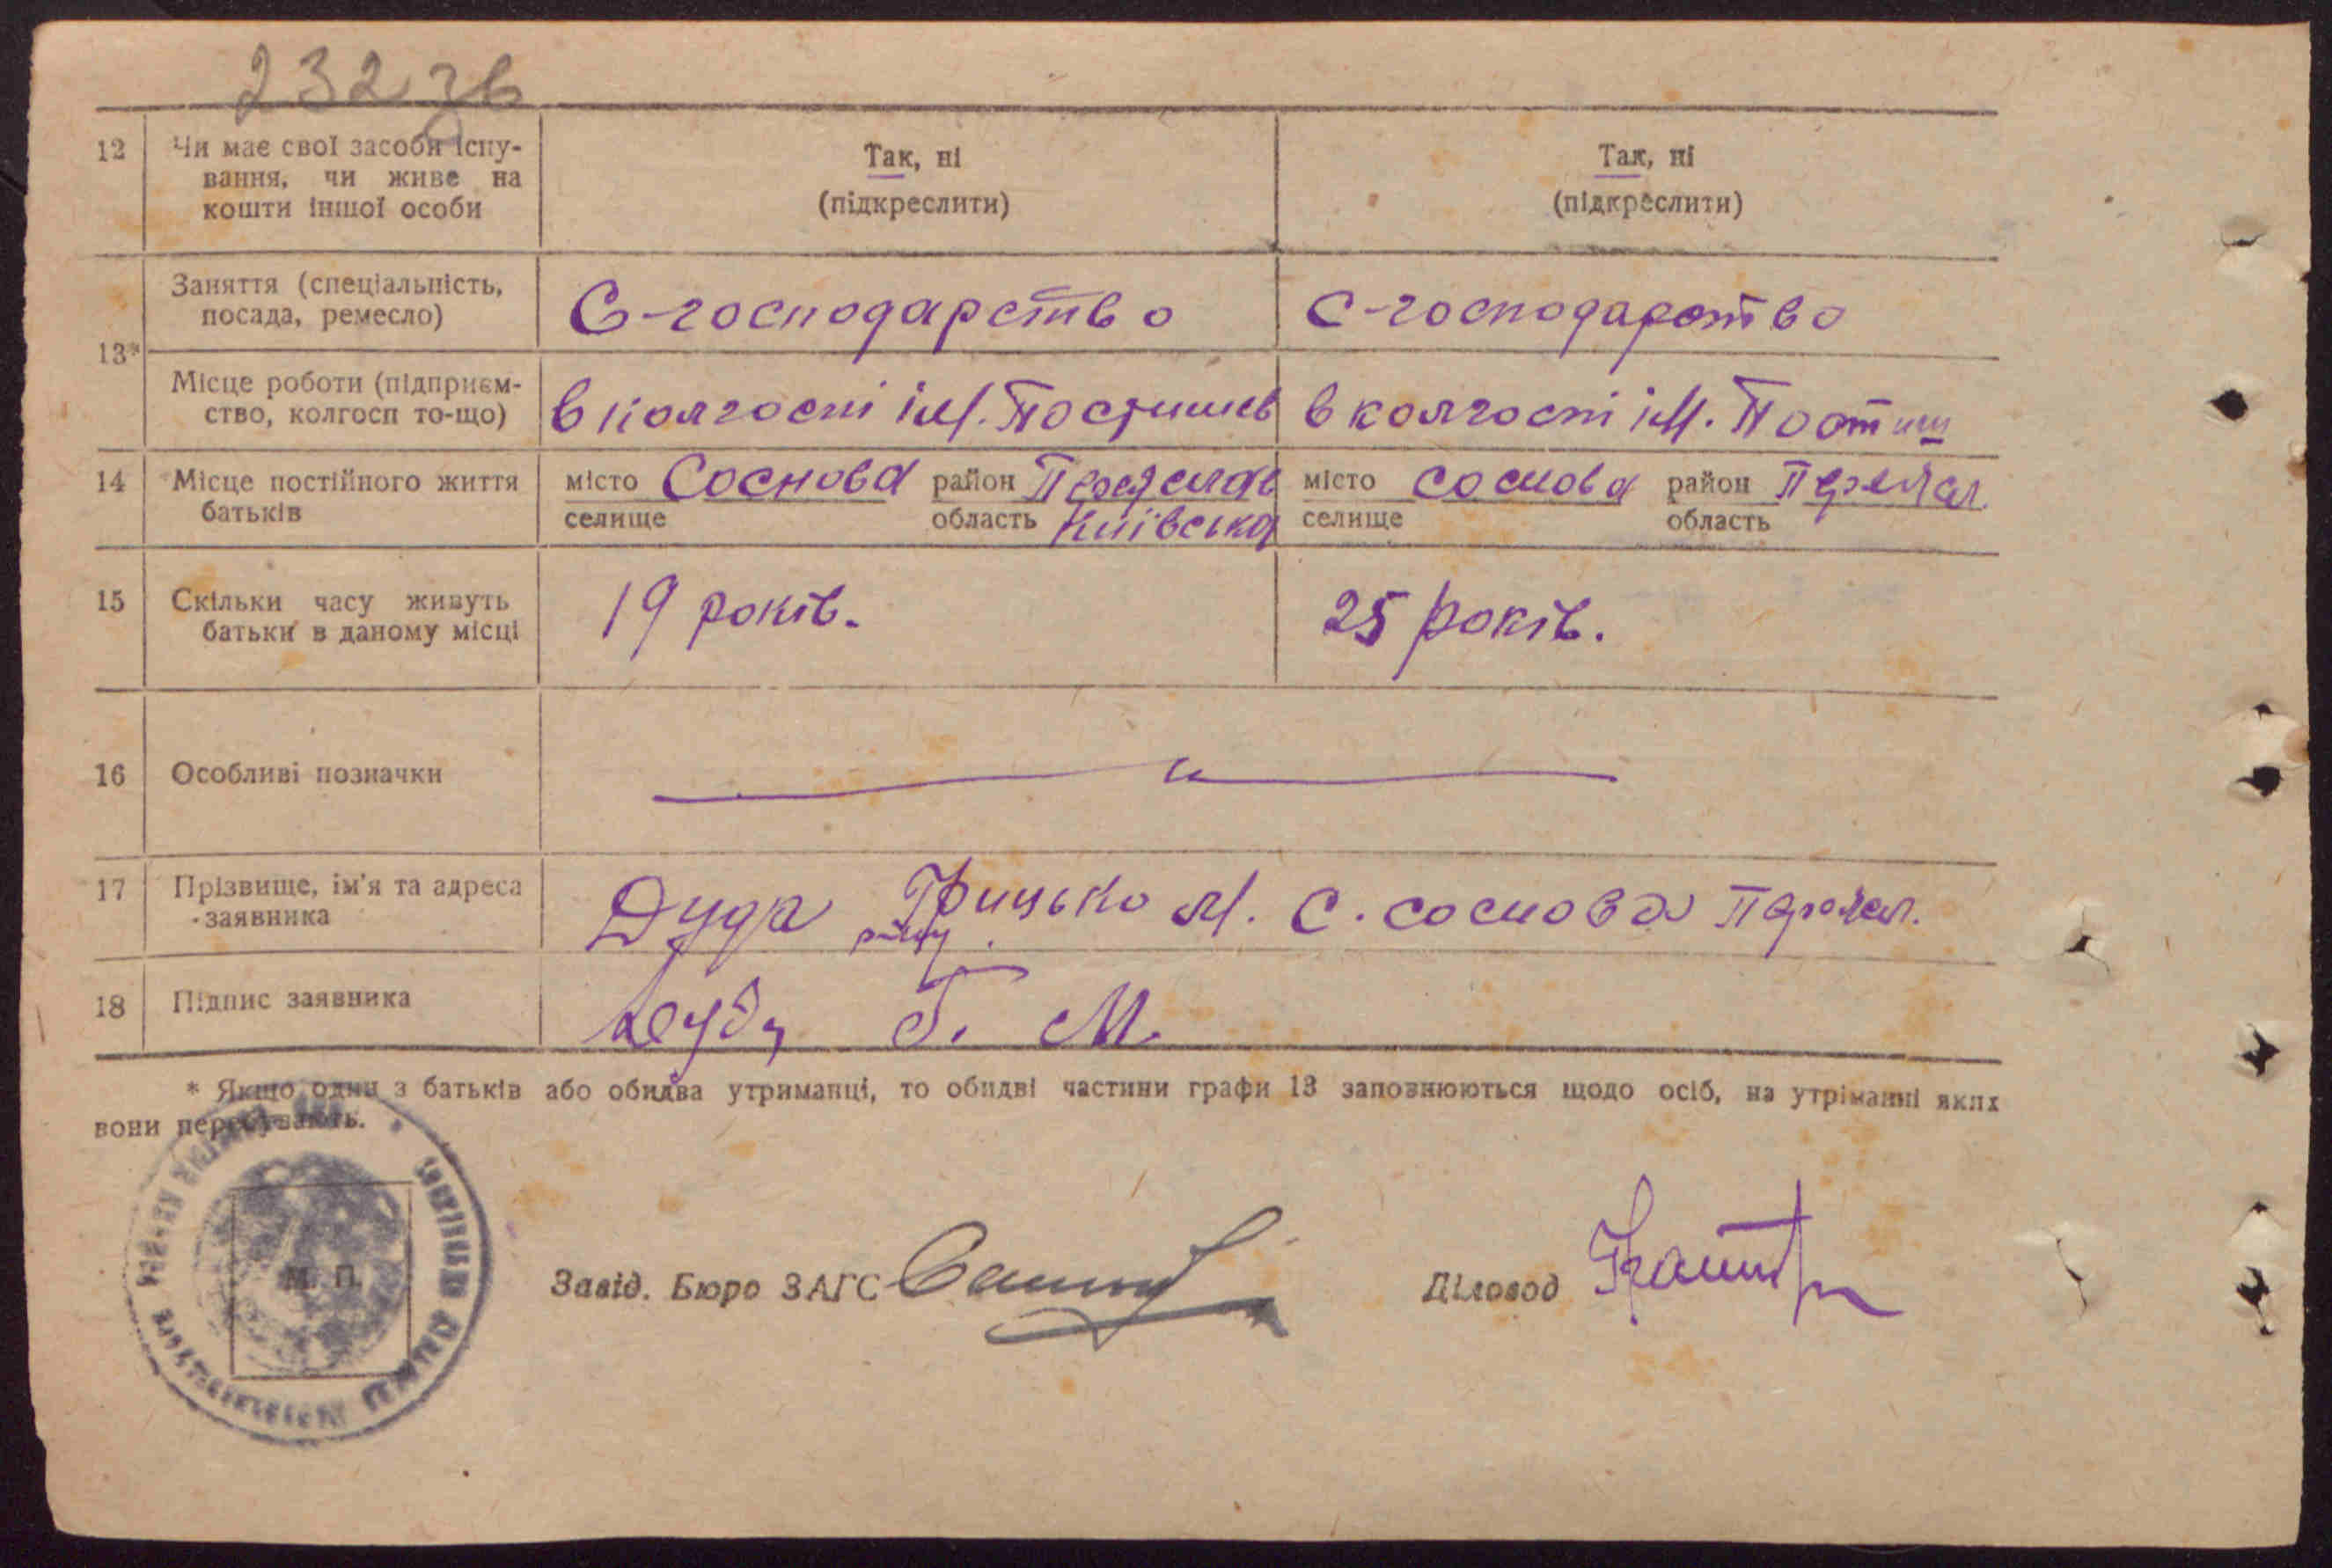 232 зв
12 Чи має свої засоби існу- Так, ні Так, ні
вання, чи живе на (підкреслити) (підкреслити)
кошти іншої особи
Заняття (спеціальність, С-господарство с-господарство
посада, ремесло)
13*
Місце роботи (підприєм- в колгоспі ім. Постишев в колгоспі ім. Постиш
ство, колгосп то-що)
14 Місце постійного життя місто Соснова район Переяслав місто соснова район Переясл.
батьків селище область Київська селище область
15 Скільки часу живуть 19 років. 25 років.
батьки в даному місці
16 Особливі позначки
17 Прізвище, ім'я та адреса Дуда Грицько М. С. соснова Переясл.
заявника
18 Підпис заявника Дуда Г. М.
* Якщо один з батьків або обидва утриманці, то обидві частини графи 13 заповнюються щодо осіб, на утріманні яких
вони перебувають.
М. П.
Завід. Бюро ЗАГС Діловод